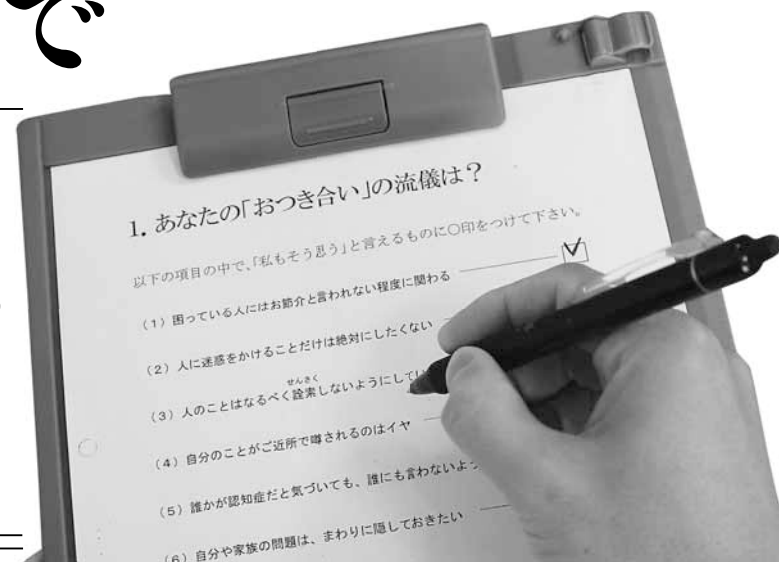 で
1. あなたの「おつき合い」の流儀は？
以下の項目の中で、「私もそう思う」と言えるものに〇印をつけて下さい。
(1) 困っている人にはお節介と言われない程度に関わる
(2) 人に迷惑をかけることだけは絶対にしたくない
せんさく
(3) 人のことはなるべく詮索しないようにしてい
(4) 自分のことがご近所で噂されるのはイヤ
(5) 誰かが認知症だと気づいても、誰にも言わないよ
(6) 自分や家族の問題は、まわりに隠しておきたい